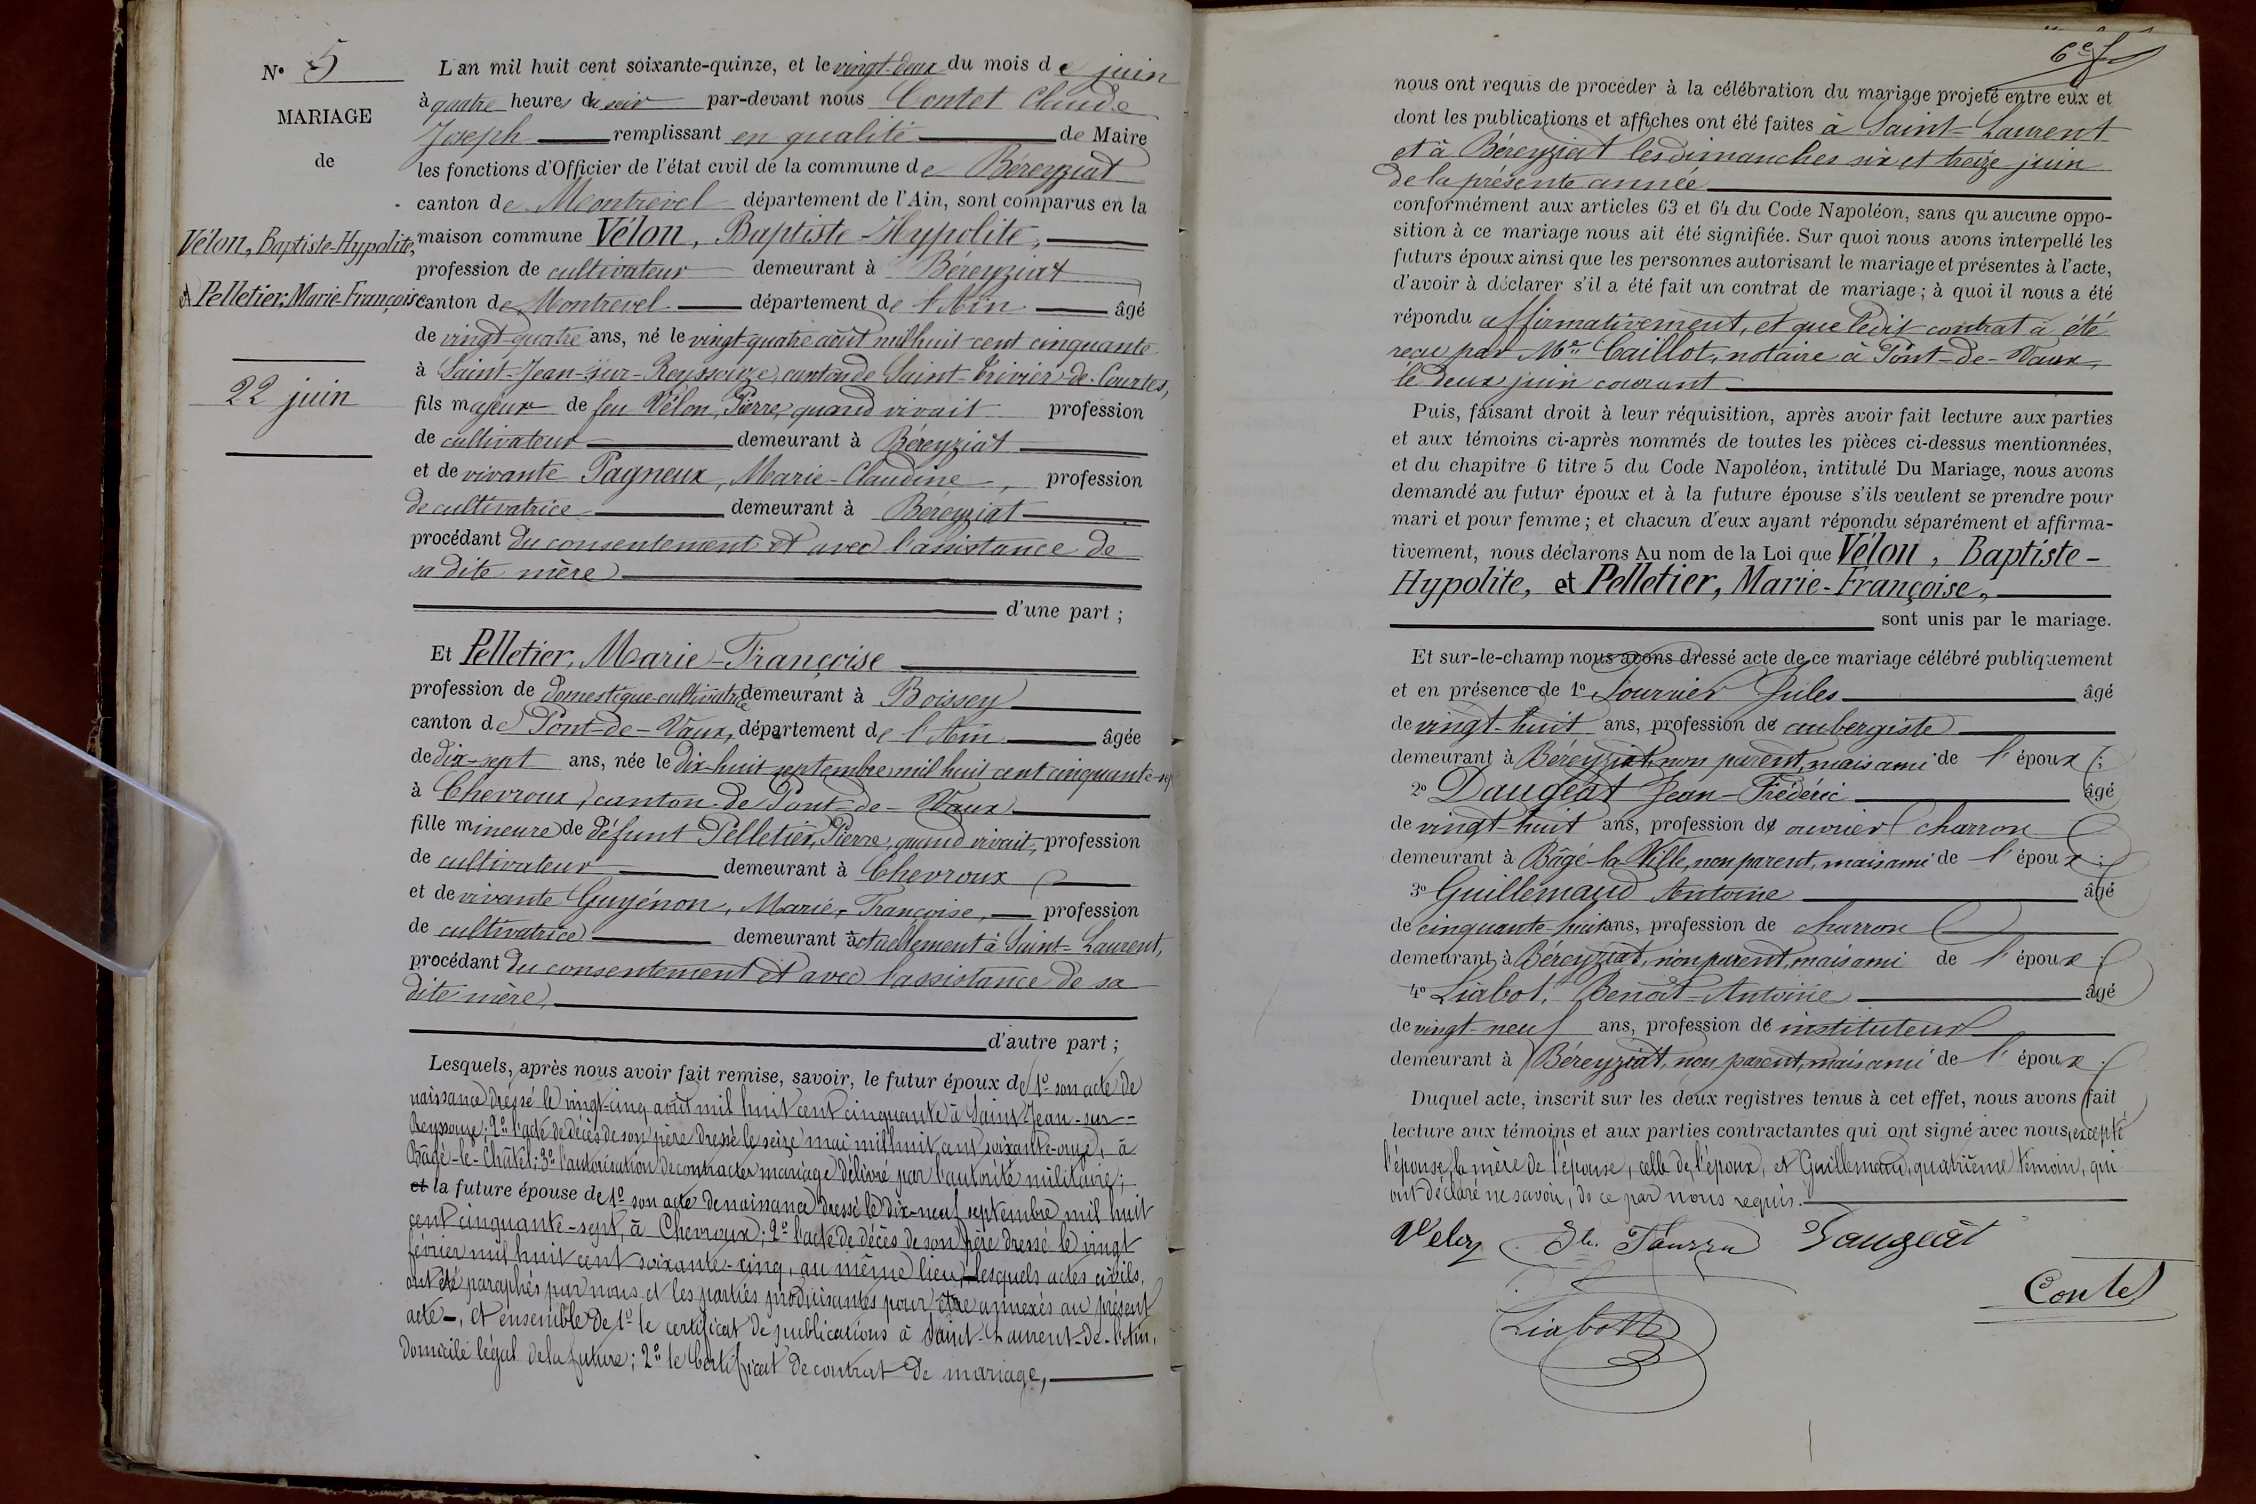 N° 5
MARIAGE
de
Vélon, Baptiste-Hypolite,
et Pelletier, Marie Françoise
22 juin
L'an mil huit cent soixante-quinze, et le vingt-deux du mois de juin
à quatre heures du soir par-devant nous Contet Claude
Joseph remplissant en qualité de Maire
les fonctions d'Officier de l'état civil de la commune de Béreyziat
canton de Montrevel département de l'Ain, sont comparus en la
maison commune Vélon, Baptiste-Hypolite,
profession de cultivateur demeurant à Béreyziat
canton de Montrevel département de l'Ain âgé
de vingt-quatre ans, né le vingt-quatre août mil huit cent cinquante
à Saint-Jean-sur-Reyssouze, canton de Saint-Trivier-de-Courtes,
fils majeur de feu Vélon, Pierre, quand vivait profession
de cultivateur demeurant à Béreyziat
et de vivante Pagneux, Marie-Claudine, profession
de cultivatrice demeurant à Béreyziat
procédant du consentement et avec l'assistance de
sa dite mère
d'une part ;
Et Pelletier, Marie-Françoise
profession de domestique-cultivatrice demeurant à Boissey
canton de Pont-de-Vaux, département de l'Ain âgée
de dix-sept ans, née le dix-huit septembre mil huit cent cinquante-sept
à Chevroux, canton de Pont-de-Vaux
fille mineure de défunt Pelletier, Pierre, quand vivait, profession
de cultivateur demeurant à Chevroux
et de vivante Guyénon, Marie-Françoise, profession
de cultivatrice demeurant actuellement à Saint-Laurent,
procédant du consentement et avec l'assistance de sa
dite mère,
d'autre part ;
Lesquels, après nous avoir fait remise, savoir, le futur époux de 1° son acte de
naissance dressé le vingt-cinq août mil huit cent cinquante à Saint Jean-sur-
Reyssouze; 2° l'acte de décès de son père dressé le seize mai mil huit cent soixante-onze, à
Bâgé-le-Châtel; 3° l'autorisation de contracter mariage délivré par l'autorité militaire;
et la future épouse de 1° son acte de naissance dressé le dix-neuf septembre mil huit
cent cinquante-sept, à Chevroux; 2° l'acte de décès de son père dressé le vingt
février mil huit cent soixante-cinq, au même lieu, lesquels actes civils,
ont été paraphés par nous et les parties produisantes pour être annexés au présent
acte, et ensemble de 1° le certificat de publications à Saint-Laurent-de-l'Ain,
domicile légal de la future; 2° le Certificat de contrat de mariage,
6e f.
nous ont requis de procéder à la célébration du mariage projeté entre eux et
dont les publications et affiches ont été faites à Saint-Laurent
et à Béreyziat les dimanches six et treize juin
de la présente année
conformément aux articles 63 et 64 du Code Napoléon, sans qu'aucune oppo-
sition à ce mariage nous ait été signifiée. Sur quoi nous avons interpellé les
futurs époux ainsi que les personnes autorisant le mariage et présentes à l'acte,
d'avoir à déclarer s'il a été fait un contrat de mariage ; à quoi il nous a été
répondu affirmativement, et que ledit contrat a été
reçu par Me Caillot, notaire à Pont-de-Vaux,
le deux juin courant
Puis, faisant droit à leur réquisition, après avoir fait lecture aux parties
et aux témoins ci-après nommés de toutes les pièces ci-dessus mentionnées,
et du chapitre 6 titre 5 du Code Napoléon, intitulé Du Mariage, nous avons
demandé au futur époux et à la future épouse s'ils veulent se prendre pour
mari et pour femme ; et chacun d'eux ayant répondu séparément et affirma-
tivement, nous déclarons Au nom de la Loi que Vélon, Baptiste-
Hypolite, et Pelletier, Marie-Françoise,
sont unis par le mariage.
Et sur-le-champ nous avons dressé acte de ce mariage célébré publiquement
et en présence de 1° Fournier Jules âgé
de vingt-huit ans, profession de aubergiste
demeurant à Béreyziat, non parent, mais ami de l'époux ;
2° Daugeat Jean-Frédéric âgé
de vingt-huit ans, profession de ouvrier charron
demeurant à Bâgé-la-Ville, non parent, mais ami de l'époux ;
3° Guillemaud Antoine âgé
de cinquante-huit ans, profession de charron
demeurant à Béreyziat, non parent, mais ami de l'époux ;
4° Liabot, Benoît-Antoine âgé
de vingt-neuf ans, profession de instituteur
demeurant à Béreyziat, non parent, mais ami de l'époux.
Duquel acte, inscrit sur les deux registres tenus à cet effet, nous avons fait
lecture aux témoins et aux parties contractantes qui ont signé avec nous, excepté
l'épouse, la mère de l'épouse, celle de l'époux, et Guillemaud, quatrième témoin, qui
ont déclaré ne savoir, de ce par nous requis.
Daugeat
Contet
Liabot